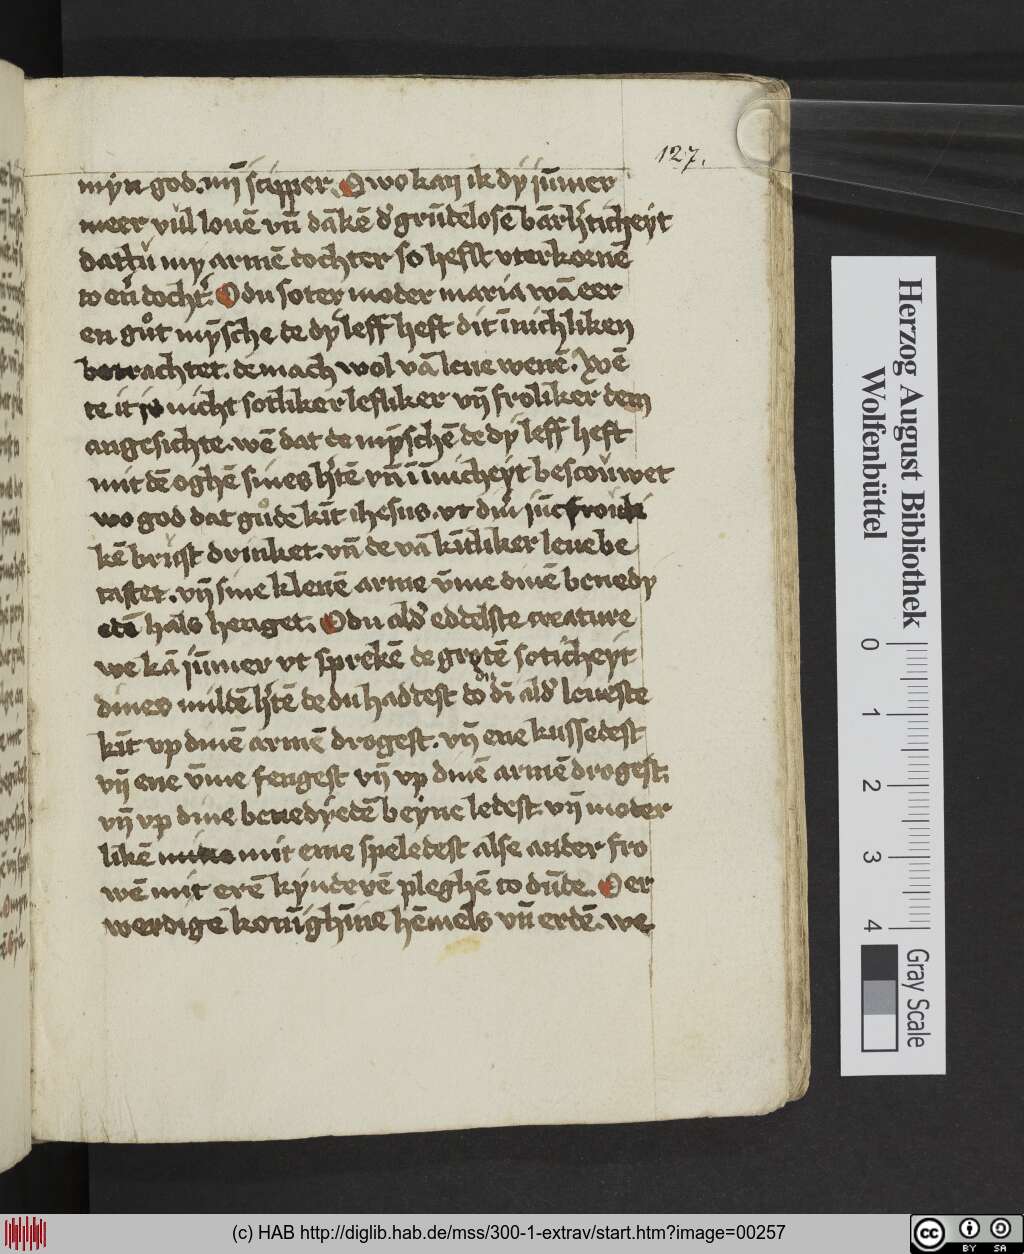 127.
myn god. mȳ scipper. O wo kan ik dy jūmer
meer vul louē vn̄ dākē d' grūdelosē bārh'ticheyt
dattu my armē dochter so hefst vterkornē
to en' docht'. O du soter moder maria wāeer
en gůt mȳsche de dy leff heft dit īnichliken
betrachtet. de mach wol vā leue wenē. Wē
te it jo nicht sotliker lefliker vn̄ froliker dem
angesichte. wē dat de mȳschē de dy leff heft
mit dē oghē sines h'tē vn̄ īnicheyt bescouwet
wo god dat gůde kīt ihesus. vt din' jūcfrouwli
kē brust drinket. vn̄ de vā kītliker leue be
tastet. vn̄ sine klenē arme v̄me dinē benedy
edē hals henget. O du ald' eddelste creature
we kā jūmer vt sprekē de grotē soticheyt
dines mildē h'tē de du haddest do du dī ald' leueste
kīt vp dinē armē drogest. vn̄ ene kussedest
vn̄ ene v̄me fengest vn̄ vp dinē armē drogest.
vn̄ vp dine benedyedē beyne ledest. vn̄ moder
likē mit eme speledest alse ander fro
wē mit erē kynderē pleghē to dūde. O er
werdige konīghīne hēmels vn̄ erdē. we
Herzog August Bibliothek
Wolfenbüttel
0 1 2 3 4
Gray Scale
(c) HAB http://diglib.hab.de/mss/300-1-extrav/start.htm?image=00257
cc BY SA